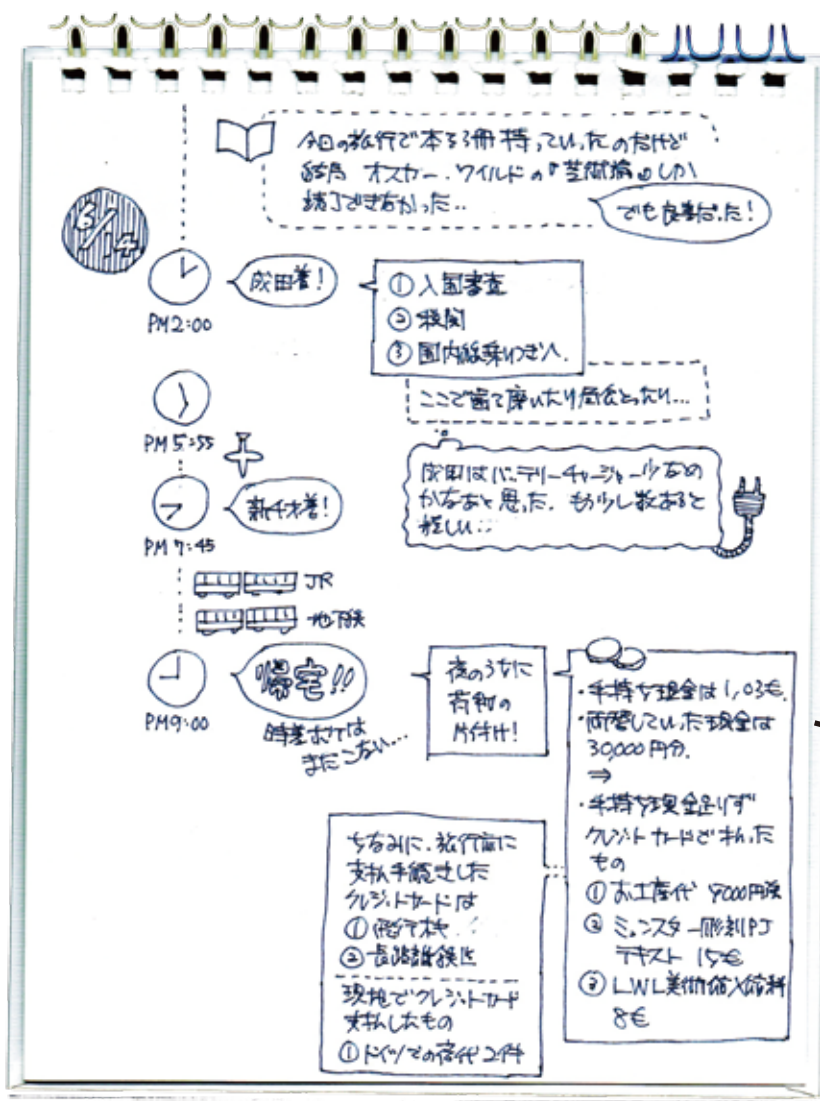 今回の旅行で本を3冊持っていったのだけど
結局 オスカー・ワイルドの『芸術論』しか
読了できなかった..
でも良書だった!
6/4
PM2:00
成田着!
① 入国審査
② 税関
③ 国内線乗りつぎへ.
ここで歯を磨いたり したり...
PM5:55
成田はバッテリーチャージャー少なめ
かなあと思った. もう少し数あると
嬉しい..
PM7:45
新千才着!
JR
地下鉄
PM9:00
帰宅!!
時差ボケは
まだこない...
夜のうちに
荷物の
片付け!
・手持ち現金は1,03€.
・両替していった現金は
30,000円分.
⇒
・手持ち現金足りず
クレジットカードで払った
もの
① お土産代 9000円後
② ミュンスター彫刻PJ
テキスト 15€
③ LWL美術館入館料
8€
ちなみに、旅行前に
支払手続きした
クレジットカードは
① 飛行機
② 長距離鉄道
現地でクレジットカード
支払したもの
① ドイツでの宿代2件